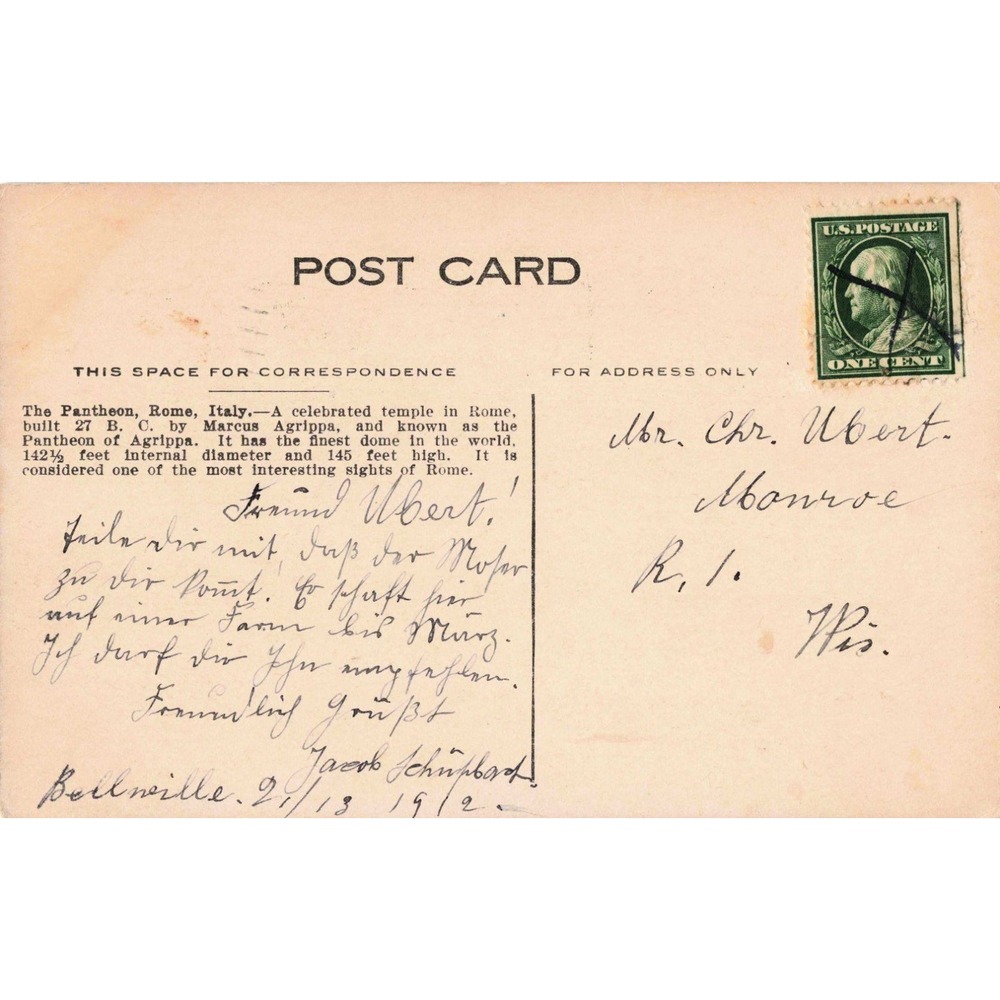 POST CARD
U.S.POSTAGE
ONE CENT
THIS SPACE FOR CORRESPONDENCE
FOR ADDRESS ONLY
The Pantheon, Rome, Italy.—A celebrated temple in Rome,
built 27 B. C. by Marcus Agrippa, and known as the
Pantheon of Agrippa. It has the finest dome in the world,
142½ feet internal diameter and 145 feet high. It is
considered one of the most interesting sights of Rome.
Freund Ubert!
Teile dir mit, daß der Moser
zu dir kom̅t! Er schaft hier
auf einer Farm bis März.
Ich darf dir Ihn empfehlen.
Freundlich Grüßt
Jacob Schüpbach
Bellneille. 2/13 1912.
Mr. Chr. Ubert.
Monroe
R, 1.
Wis.